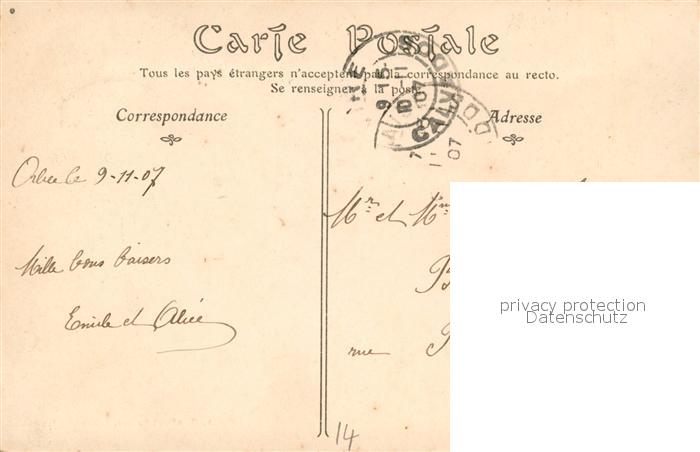 Carte Postale
Tous les pays étrangers n'acceptent pas la correspondance au recto.
Se renseigner à la poste
Correspondance
Adresse
Orbec le 9-11-07
Mille bons baisers
Emile et Alice
Mr et
rue
14
CALVADOS
07
privacy protection
Datenschutz